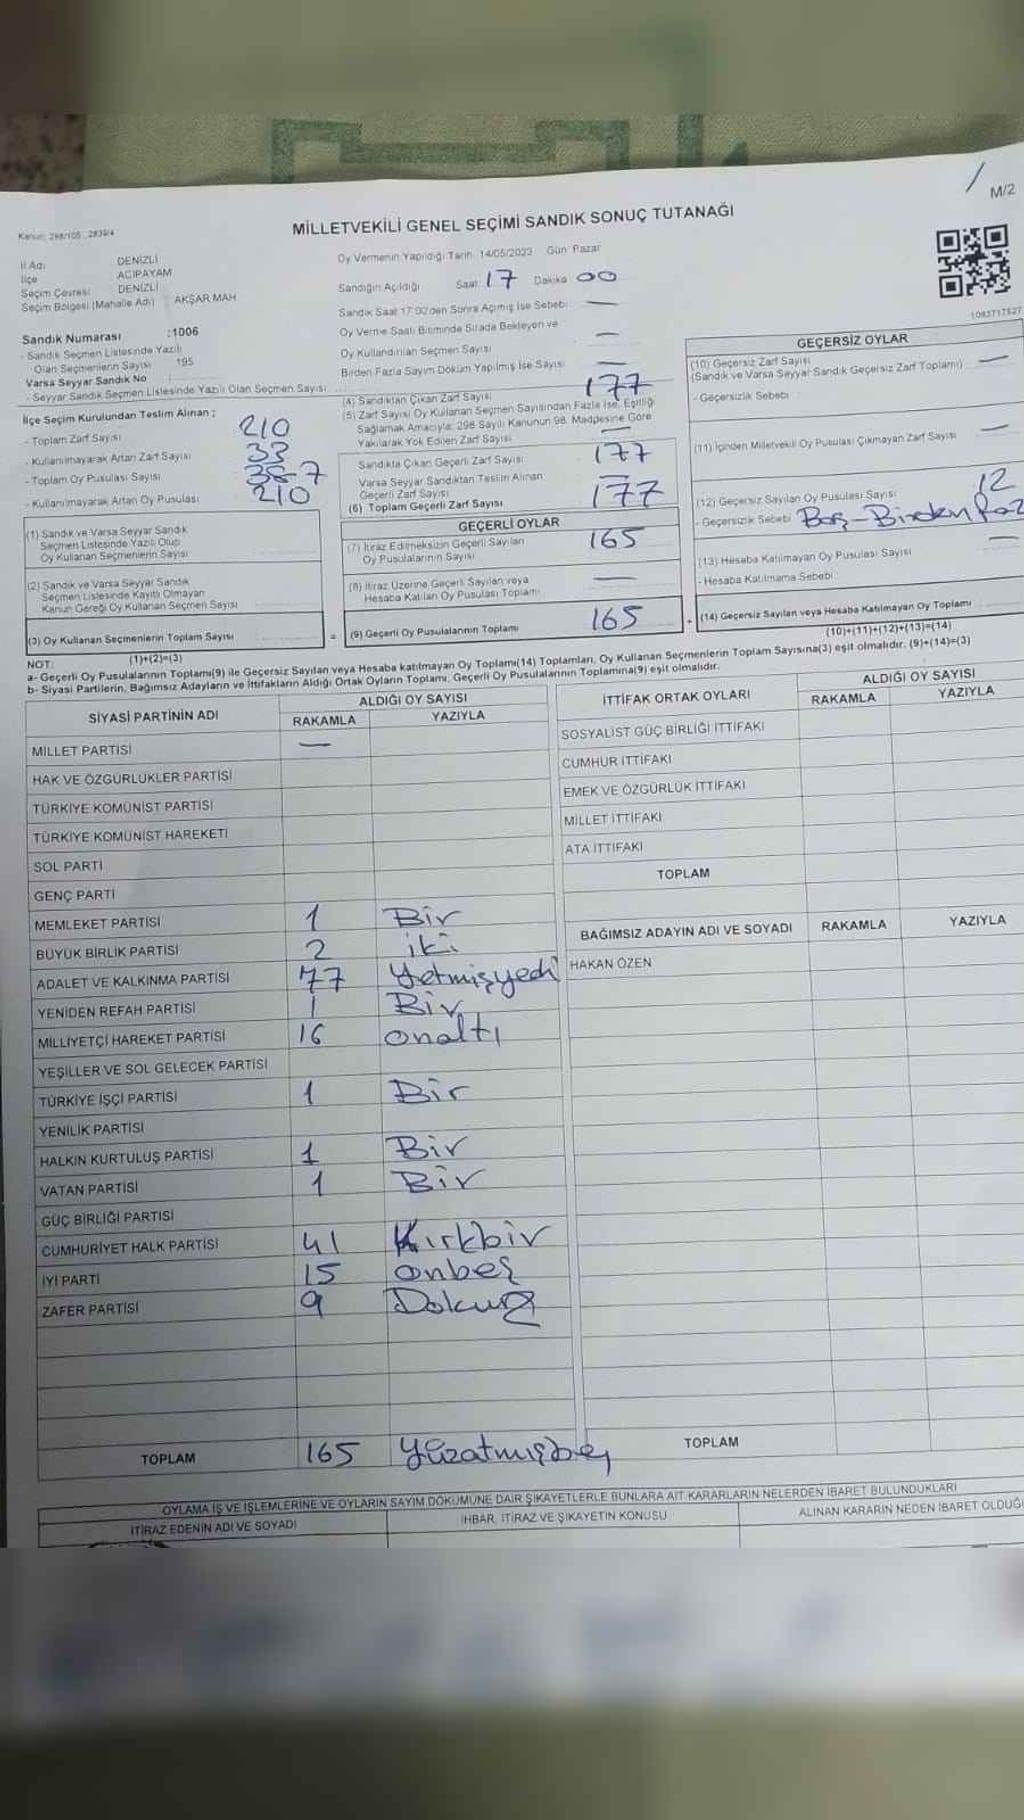 M/2
MİLLETVEKİLİ GENEL SEÇİMİ SANDIK SONUÇ TUTANAĞI
Kanun: 298/105 , 2839/4
İl Adı DENİZLİ
İlçe ACIPAYAM
Seçim Çevresi DENİZLİ
Seçim Bölgesi (Mahalle Adı) AKŞAR MAH
Oy Vermenin Yapıldığı Tarih: 14/05/2023 Gün: Pazar
Sandığın Açıldığı Saat: 17 Dakika 00
Sandık Saat 17:00'den Sonra Açılmış İse Sebebi: —
Oy Verme Saati Bitiminde Sırada Bekleyen ve
Oy Kullandırılan Seçmen Sayısı —
Birden Fazla Sayım Döküm Yapılmış İse Sayısı —
1083717527
Sandık Numarası :1006
- Sandık Seçmen Listesinde Yazılı
Olan Seçmenlerin Sayısı 195
Varsa Seyyar Sandık No
- Seyyar Sandık Seçmen Listesinde Yazılı Olan Seçmen Sayısı
İlçe Seçim Kurulundan Teslim Alınan ;
- Toplam Zarf Sayısı 210
- Kullanılmayarak Artan Zarf Sayısı 33
- Toplam Oy Pusulası Sayısı
- Kullanılmayarak Artan Oy Pusulası 210
(1) Sandık ve Varsa Seyyar Sandık
Seçmen Listesinde Yazılı Olup
Oy Kullanan Seçmenlerin Sayısı
(2) Sandık ve Varsa Seyyar Sandık
Seçmen Listesinde Kayıtlı Olmayan
Kanun Gereği Oy Kullanan Seçmen Sayısı
(3) Oy Kullanan Seçmenlerin Toplam Sayısı
(1)+(2)=(3)
(4) Sandıktan Çıkan Zarf Sayısı 177
(5) Zarf Sayısı Oy Kullanan Seçmen Sayısından Fazla İse, Eşitliği
Sağlamak Amacıyla; 298 Sayılı Kanunun 98. Maddesine Göre
Yakılarak Yok Edilen Zarf Sayısı —
Sandıkta Çıkan Geçerli Zarf Sayısı 177
Varsa Seyyar Sandıktan Teslim Alınan
Geçerli Zarf Sayısı
(6) Toplam Geçerli Zarf Sayısı 177
GEÇERLİ OYLAR
(7) İtiraz Edilmeksizin Geçerli Sayılan
Oy Pusulalarının Sayısı 165
(8) İtiraz Üzerine Geçerli Sayılan veya
Hesaba Katılan Oy Pusulası Toplamı —
= (9) Geçerli Oy Pusulalarının Toplamı 165 +
GEÇERSİZ OYLAR
(10) Geçersiz Zarf Sayısı —
(Sandık ve Varsa Seyyar Sandık Geçersiz Zarf Toplamı)
- Geçersizlik Sebebi :
(11) İçinden Milletvekili Oy Pusulası Çıkmayan Zarf Sayısı —
(12) Geçersiz Sayılan Oy Pusulası Sayısı 12
- Geçersizlik Sebebi Boş - Birden faz
(13) Hesaba Katılmayan Oy Pusulası Sayısı —
- Hesaba Katılmama Sebebi :
(14) Geçersiz Sayılan veya Hesaba Katılmayan Oy Toplamı
(10)+(11)+(12)+(13)=(14)
NOT:
a- Geçerli Oy Pusulalarının Toplamı(9) ile Geçersiz Sayılan veya Hesaba katılmayan Oy Toplamı(14) Toplamları, Oy Kullanan Seçmenlerin Toplam Sayısına(3) eşit olmalıdır. (9)+(14)=(3)
b- Siyasi Partilerin, Bağımsız Adayların ve İttifakların Aldığı Ortak Oyların Toplamı, Geçerli Oy Pusulalarının Toplamına(9) eşit olmalıdır.
SİYASİ PARTİNİN ADI ALDIĞI OY SAYISI
RAKAMLA YAZIYLA
MİLLET PARTİSİ —
HAK VE ÖZGÜRLÜKLER PARTİSİ
TÜRKİYE KOMÜNİST PARTİSİ
TÜRKİYE KOMÜNİST HAREKETİ
SOL PARTİ
GENÇ PARTİ
MEMLEKET PARTİSİ 1 Bir
BÜYÜK BİRLİK PARTİSİ 2 iki
ADALET VE KALKINMA PARTİSİ 77 Yetmişyedi
YENİDEN REFAH PARTİSİ 1 Bir
MİLLİYETÇİ HAREKET PARTİSİ 16 onaltı
YEŞİLLER VE SOL GELECEK PARTİSİ
TÜRKİYE İŞÇİ PARTİSİ 1 Bir
YENİLİK PARTİSİ
HALKIN KURTULUŞ PARTİSİ 1 Bir
VATAN PARTİSİ 1 Bir
GÜÇ BİRLİĞİ PARTİSİ
CUMHURİYET HALK PARTİSİ 41 Kırkbir
İYİ PARTİ 15 onbeş
ZAFER PARTİSİ 9 Dokuz
TOPLAM 165 Yüzatmışbeş
İTTİFAK ORTAK OYLARI ALDIĞI OY SAYISI
RAKAMLA YAZIYLA
SOSYALİST GÜÇ BİRLİĞİ İTTİFAKI
CUMHUR İTTİFAKI
EMEK VE ÖZGÜRLÜK İTTİFAKI
MİLLET İTTİFAKI
ATA İTTİFAKI
TOPLAM
BAĞIMSIZ ADAYIN ADI VE SOYADI RAKAMLA YAZIYLA
HAKAN ÖZEN
TOPLAM
OYLAMA İŞ VE İŞLEMLERİNE VE OYLARIN SAYIM DÖKÜMÜNE DAİR ŞİKAYETLERLE BUNLARA AİT KARARLARIN NELERDEN İBARET BULUNDUKLARI
İTİRAZ EDENİN ADI VE SOYADI İHBAR, İTİRAZ VE ŞİKAYETİN KONUSU ALINAN KARARIN NEDEN İBARET OLDUĞ